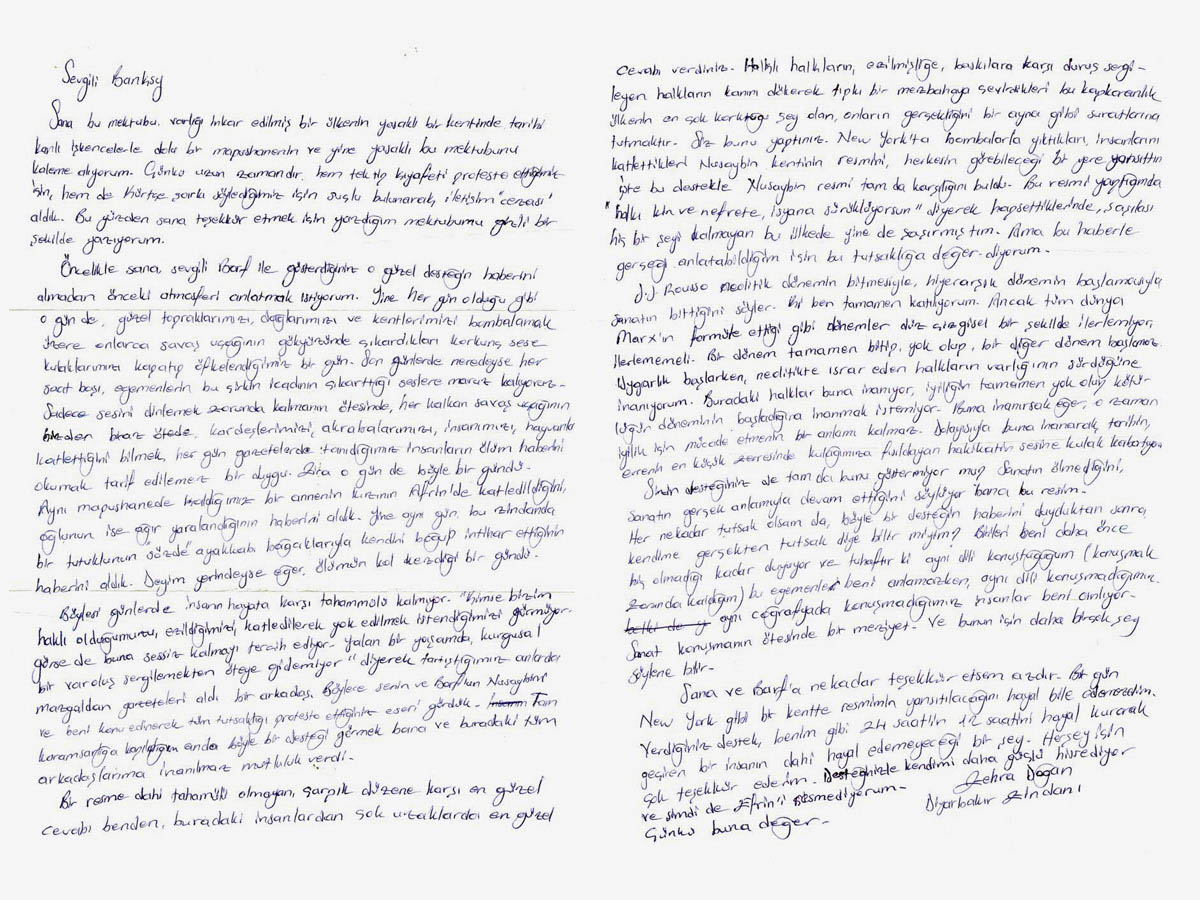 Sevgili Banksy
Sana bu mektubu, varlığı inkar edilmiş bir ülkenin yasaklı bir kentinde tarihi
kanlı işkencelerle dolu bir mapushanenin ve yine yasaklı bu mektubunu
kaleme alıyorum. Çünkü uzun zamandır, hem tek tip kıyafeti protesto ettiğimiz
için, hem de Kürtçe şarkı söylediğimiz için suçlu bulunarak, iletişim "cezası"
aldık. Bu yüzden sana teşekkür etmek için yazdığım mektubumu gizli bir
şekilde yazıyorum.
Öncelikle sana, sevgili Borf ile gösterdiğiniz o güzel desteğin haberini
almadan önceki atmosferi anlatmak istiyorum. Yine her gün olduğu gibi
o gün de, güzel topraklarımızı, dağlarımızı ve kentlerimizi bombalamak
üzere onlarca savaş uçağının gökyüzünde çıkardıkları korkunç sese
kulaklarımızı kapatıp öfkelendiğimiz bir gün. Son günlerde neredeyse her
saat başı, egemenlerin bu çirkin icadının çıkarttığı seslere maruz kalıyoruz.
Sadece sesini dinlemek zorunda kalmanın ötesinde, her kalkan savaş uçağının
bizden biraz ötede, kardeşlerimizi, akrabalarımızı, insanımızı, hayvanları
katlettiğini bilmek, her gün gazetelerde tanıdığımız insanların ölüm haberini
okumak tarif edilemez bir duygu. Zira o gün de böyle bir gündü.
Aynı mapushanede kaldığımız bir annenin kızının Afrin'de katledildiğini,
oğlunun ise ağır yaralandığının haberini aldık. Yine aynı gün, bu zindanda
bir tutuklunun sözde ayakkabı bağcıklarıyla kendini boğup intihar ettiğinin
haberini aldık. Deyim yerindeyse eğer, ölümün kol gezdiği bir gündü.
Böylesi günlerde insanın hayata karşı tahammülü kalmıyor. "Kimse bizim
haklı olduğumuzu, ezildiğimizi, katledilerek yok edilmek istendiğimizi görmüyor.
görse de buna sessiz kalmayı tercih ediyor. Yalan bir yaşamda, kurgusal
bir varoluş sergilemekten öteye gidemiyor" diyerek tartıştığımız anlarda
mazgaldan gazeteleri aldı bir arkadaş. Böylece senin ve Borf'un Nusaybin'i
ve beni konu edinerek tüm tutsaklığı protesto ettiğiniz eseri gördük. Tam
karamsarlığa kapıldığım anda böyle bir desteği görmek bana ve buradaki tüm
arkadaşlarıma inanılmaz mutluluk verdi.
Bir resme dahi tahamülü olmayan, çarpık düzene karşı en güzel
cevabı benden, buradaki insanlardan çok uzaklarda en güzel
cevabı verdiniz. halkların, ezilmişliğe, baskılara karşı duruş sergi-
leyen halkların kanını dökerek tıpkı bir mezbahaya çevirdikleri bu kapkaranlık
ülkenin en çok korktuğu şey olan, onların gerçekliğini bir ayna gibi suratlarına
tutmaktır. Siz bunu yaptınız. New York'ta bombalarla yıktıkları, insanlarını
katlettikleri Nusaybin kentinin resmini, herkesin görebileceği bir yere yansıttın
işte bu destekle Nusaybin resmi tam da karşılığını buldu. Bu resmi yaptığımda
"halkı kin ve nefrete, isyana sürüklüyorsun" diyerek hapsettiklerinde, şaşılası
hiç bir şeyi kalmayan bu ülkede yine de şaşırmıştım. Ama bu haberle
gerçeği anlatabildiğim için bu tutsaklığa değer diyorum.
J.J. Rousso neolitik dönemin bitmesiyle, hiyerarşik dönemin başlamasıyla
sanatın bittiğini söyler. ben tamamen katılıyorum. Ancak tüm dünya
Marx'ın formüle ettiği gibi dönemler düz çizgisel bir şekilde ilerlemiyor,
ilerlememeli. Bir dönem tamamen bitip, yok olup, bir diğer dönem başlamaz.
Uygarlık başlarken, neolitikte ısrar eden halkların varlığının sürdüğüne
inanıyorum. Buradaki halklar buna inanıyor, iyiliğin tamamen yok olup kötü-
lüğün döneminin başladığına inanmak istemiyor. Buna inanırsak eğer, o zaman
iyilik için mücade etmenin bir anlamı kalmaz. Dolayısıyla buna inanarak, tarihin,
evrenin en küçük zerresinde kulağımıza fısıldayan hakikatin sesine kulak kabatıyoruz
Sizin desteğiniz de tam da bunu göstermiyor mu? Sanatın ölmediğini,
sanatın gerçek anlamıyla devam ettiğini söylüyor bana bu resim.
Her nekadar tutsak olsam da, böyle bir desteğin haberini duyduktan sonra,
kendime gerçekten tutsak diye bilir miyim? Birileri beni daha önce
hiç olmadığı kadar duyuyor ve tuhaftır ki aynı dili konuştuğum (konuşmak
zorunda kaldığım) bu egemenler beni anlamazken, aynı dili konuşmadığımız,
aynı coğrafyada konuşmadığımız insanlar beni anlıyor.
Sanat konuşmanın ötesinde bir meziyet. Ve bunun için daha birçok şey
söylene bilir.
Sana ve Borf'a nekadar teşekkür etsem azdır. Bir gün
New York gibi bir kentte resmimin yansıtılacağını hayal bile edemezdim.
Verdiğiniz destek, benim gibi 24 saatin 12 saatini hayal kurarak
geçiren bir insanın dahi hayal edemeyeceği bir şey. Herşey için
çok teşekkür ederim. Desteğinizle kendimi daha güçlü hissediyor
ve şimdi de Efrin'i resmediyorum.
Çünkü buna değer.
Zehra Doğan
Diyarbakır Zindanı